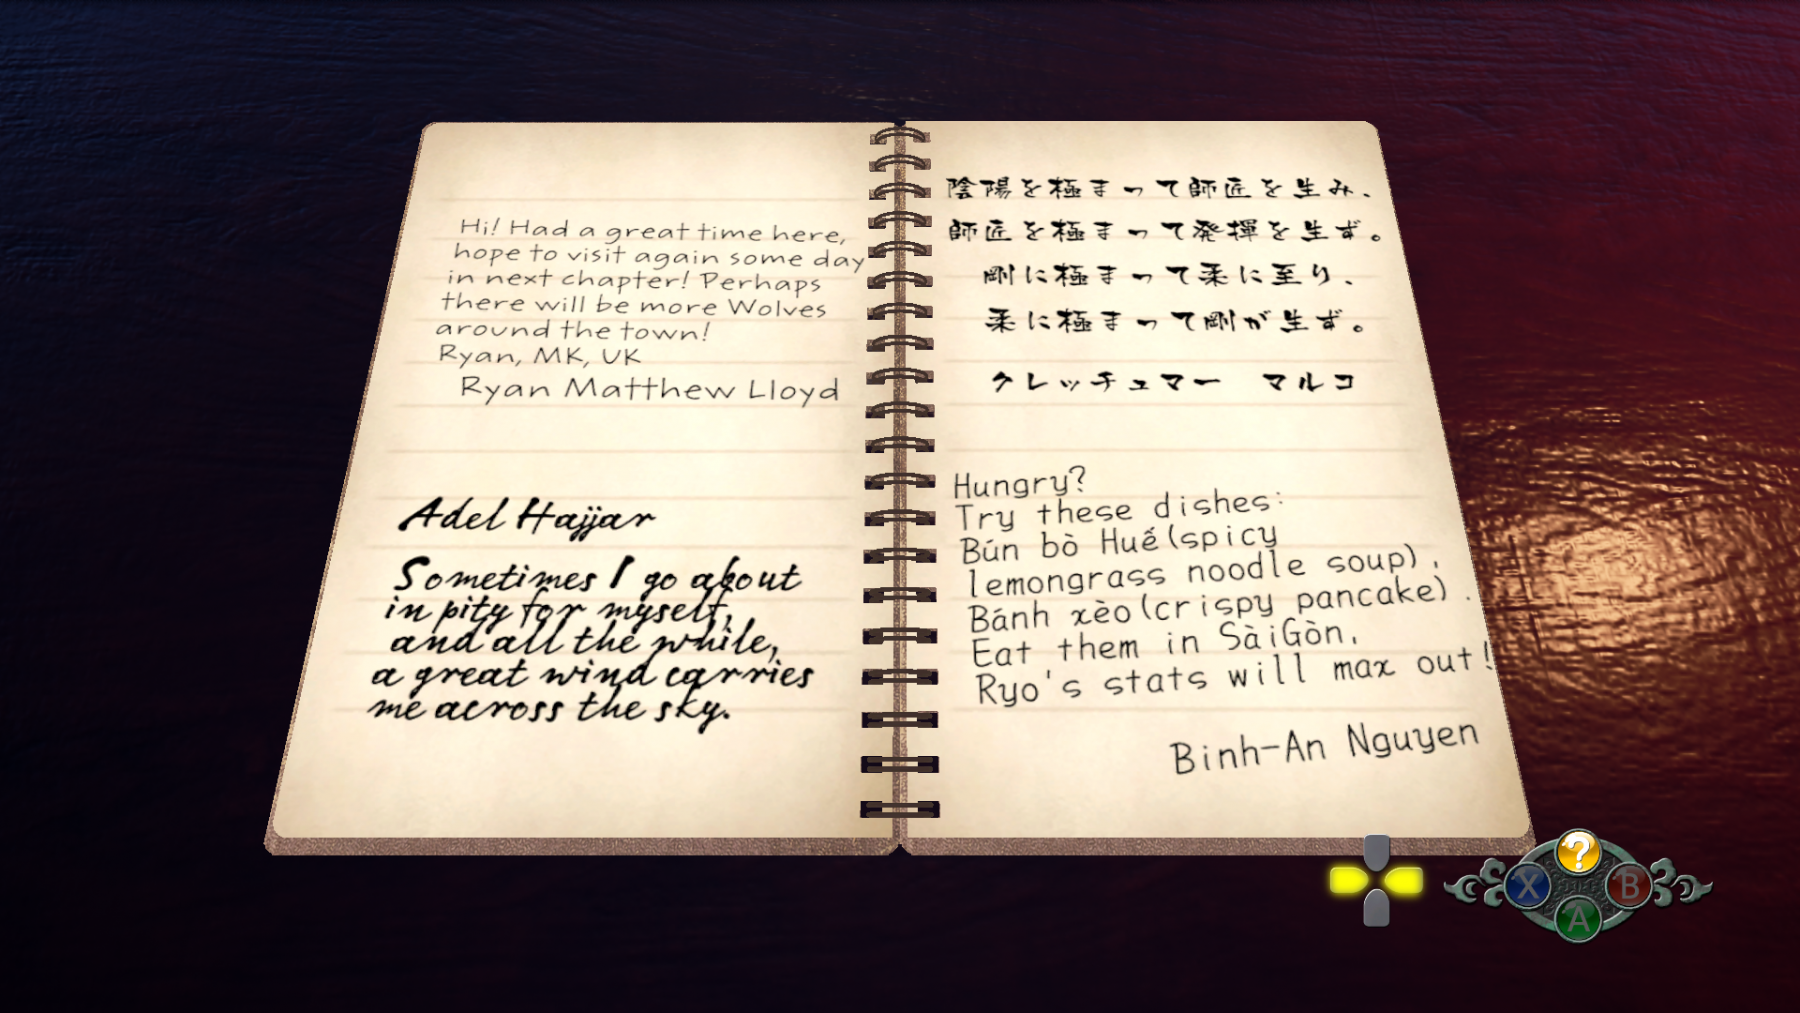 Hi! Had a great time here,
hope to visit again some day
in next chapter! Perhaps
there will be more Wolves
around the town!
Ryan, MK, UK
Ryan Matthew Lloyd
Adel Hajjar
Sometimes I go about
in pity for myself,
and all the while,
a great wind carries
me across the sky.
陰陽を極まって師匠を生み、
師匠を極まって発揮を生ず。
剛に極まって柔に至り、
柔に極まって剛が生ず。
クレッチュマー マルコ
Hungry?
Try these dishes:
Bún bò Huế(spicy
lemongrass noodle soup),
Bánh xèo(crispy pancake).
Eat them in SàiGòn,
Ryo's stats will max out!
Binh-An Nguyen
?
X
B
A